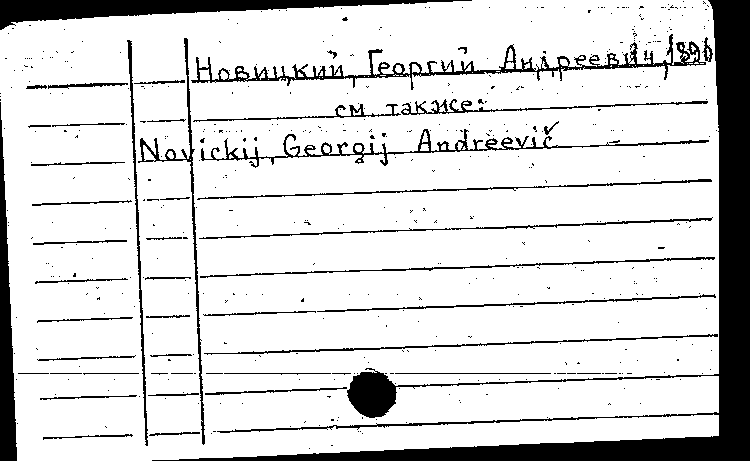 Новицкий, Георгий Андреевич, 1896
см. также:
Novickij, Georgij Andreevič